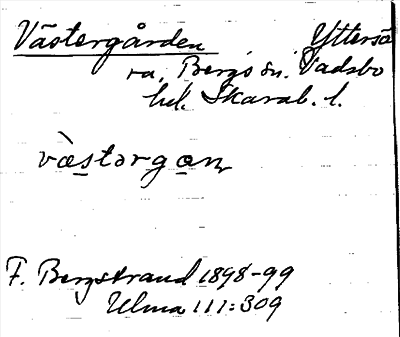 Västergården Ytterså
ra, Bergs sn. Vadsbo
hd. Skarab. l.
væstərgɑn
F. Bergstrand 1898-99
Ulma 111:309